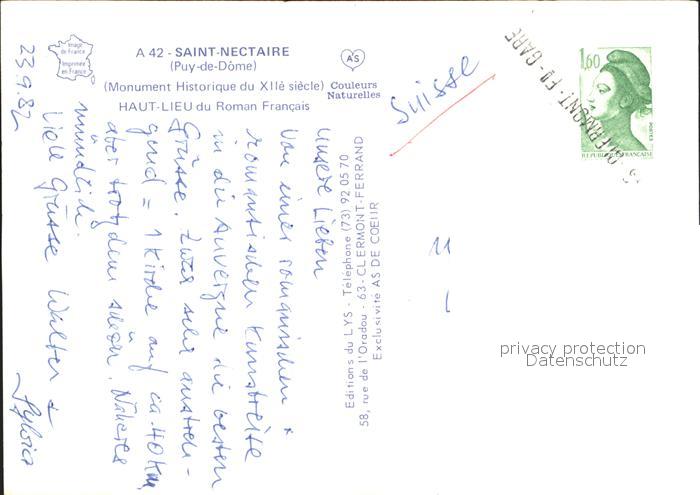 Image
de France
Imprimée
en France
A 42 - SAINT-NECTAIRE
(Puy-de-Dôme)
(Monument Historique du XIIè siècle)
HAUT-LIEU du Roman Français
AS
Couleurs
Naturelles
Editions du LYS - Téléphone (73) 92 05 70
58, rue de l'Oradou - 63- CLERMONT-FERRAND
Exclusivité AS DE COEUR
Unsere Lieben
Von einer romanischen +
romantischen Kunstreise
in die Auvergne die besten
Grüsse. Zwar sehr anstren-
gend = 1 Kirche auf ca. 40 Km,
aber trotzdem schön. Näheres
mündlich.
Viele Grüsse Walter +
Sylvia
23.9.82
Suisse
11
1
1,60
POSTES
REPUBLIQUE FRANÇAISE
CLERMONT-FD-GARE
privacy protection
Datenschutz